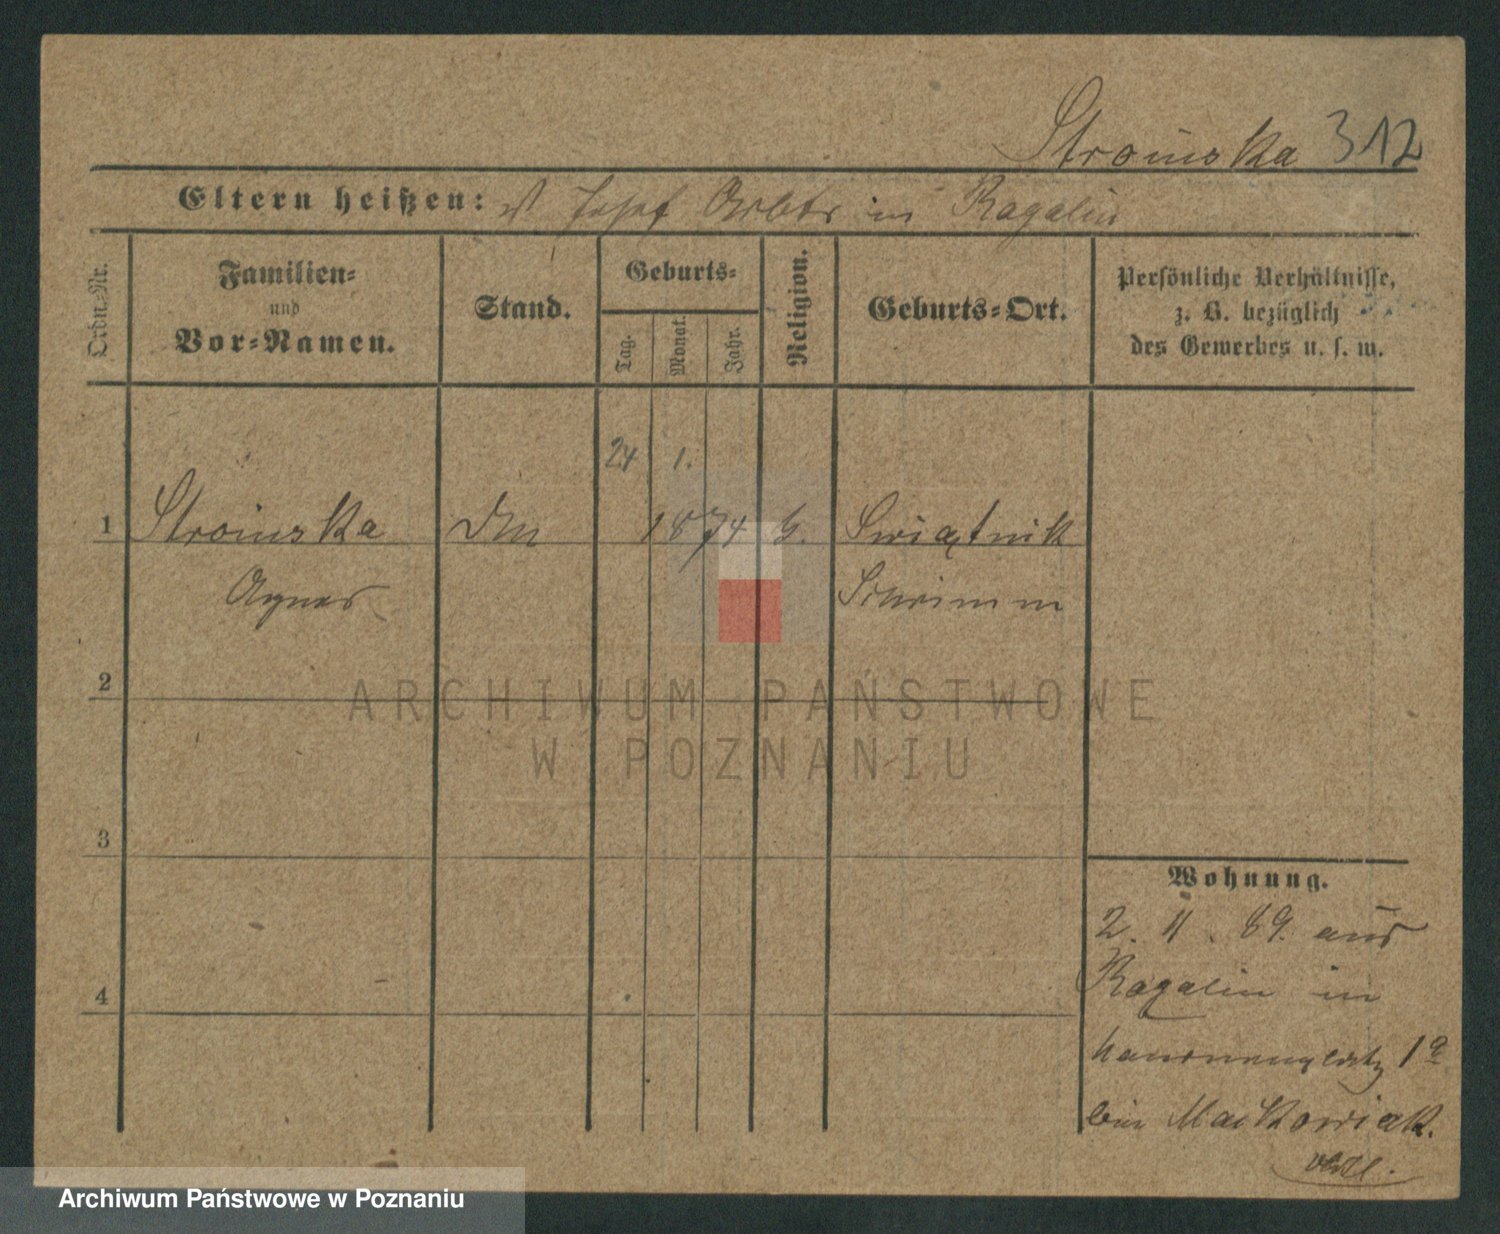 Stroinska 312
Eltern heißen: Josef Arbtr in Rogalin
Ordn.-Nr.
Familien-
und
Vor-Namen.
Stand.
Geburts-
Tag.
Monat.
Jahr.
Religion.
Geburts-Ort.
Persönliche Verhältnisse,
z. B. bezüglich
des Gewerbes u. s. w.
24 1.
1 Stroinska 1874 Swiątnik
Agnes Schrimm
2
ARCHIWUM PAŃSTWOWE
W POZNANIU
3
Wohnung.
2. 11. 89. aus
4 Rogalin in
1a
bei Maćkowiak.
Archiwum Państwowe w Poznaniu